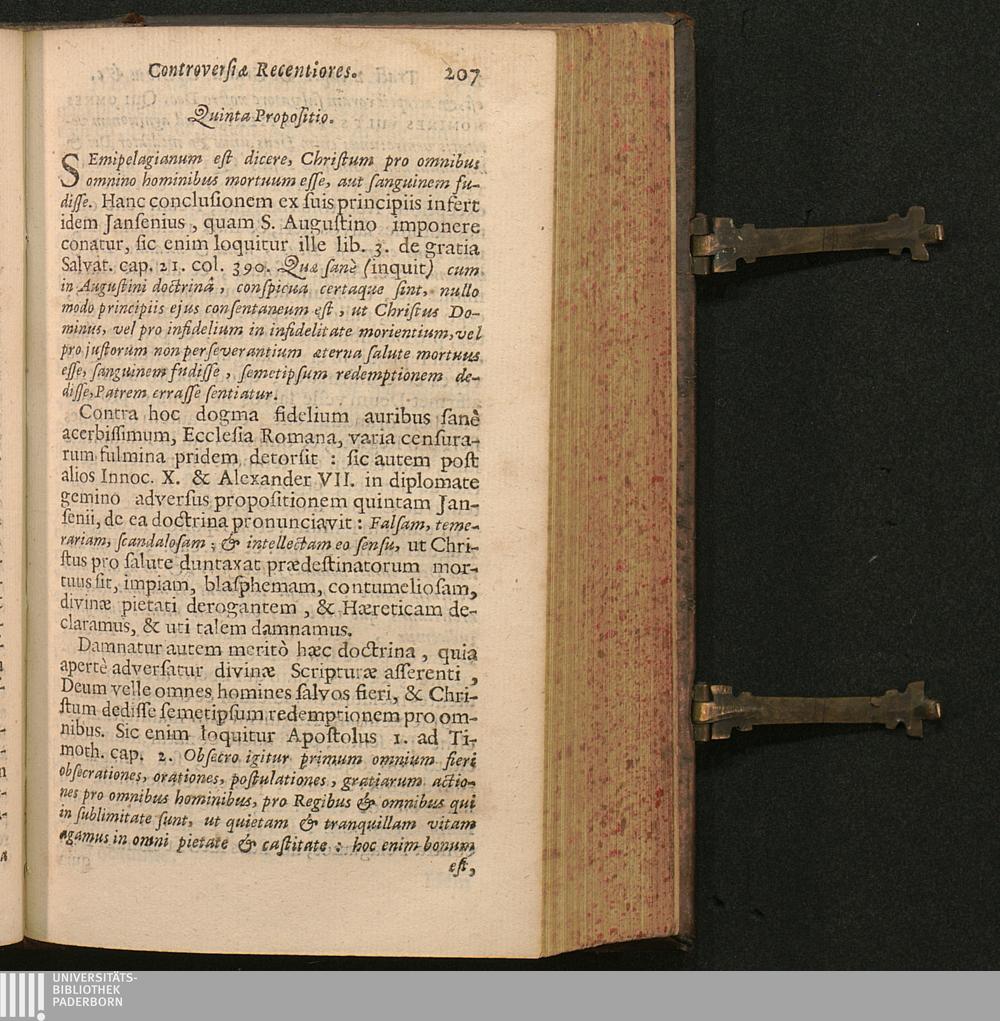 Controversiæ Recentiores. 207
Quinta Propositio.
SEmipelagianum eſt dicere, Chriſtum pro omnibus
omnino hominibus mortuum eſſe, aut ſanguinem fu-
diſſe. Hanc concluſionem ex ſuis principiis infert
idem Janſenius, quam S. Auguſtino imponere
conatur, ſic enim loquitur ille lib. 3. de gratia
Salvat. cap. 21. col. 390. Quæ ſanè (inquit) cum
in Auguſtini doctrinâ, conſpicua certaque ſint, nullo
modo principiis ejus conſentaneum eſt, ut Chriſtus Do-
minus, vel pro infidelium in infidelitate morientium, vel
pro juſtorum non perſeverantium æterna ſalute mortuus
eſſe, ſanguinem fudiſſe, ſemetipſum redemptionem de-
diſſe, Patrem erraſſe ſentiatur.
Contra hoc dogma fidelium auribus ſanè
acerbiſſimum, Eccleſia Romana, varia cenſura-
rum fulmina pridem detorſit : ſic autem poſt
alios Innoc. X. & Alexander VII. in diplomate
gemino adverſus propoſitionem quintam Jan-
ſenii, de ea doctrina pronunciavit : Falſam, teme-
rariam, ſcandaloſam ; & intellectam eo ſenſu, ut Chri-
ſtus pro ſalute duntaxat prædeſtinatorum mor-
tuus ſit, impiam, blaſphemam, contumelioſam,
divinæ pietati derogantem, & Hæreticam de-
claramus, & uti talem damnamus.
Damnatur autem meritò hæc doctrina, quia
apertè adverſatur divinæ Scripturæ aſſerenti,
Deum velle omnes homines ſalvos fieri, & Chri-
ſtum dediſſe ſemetipſum redemptionem pro om-
nibus. Sic enim loquitur Apoſtolus 1. ad Ti-
moth. cap. 2. Obſecro igitur primum omnium fieri
obſecrationes, orationes, poſtulationes, gratiarum actio-
nes pro omnibus hominibus, pro Regibus & omnibus qui
in ſublimitate ſunt, ut quietam & tranquillam vitam
agamus in omni pietate & caſtitate : hoc enim bonum
eſt,
UNIVERSITÄTS-
BIBLIOTHEK
PADERBORN